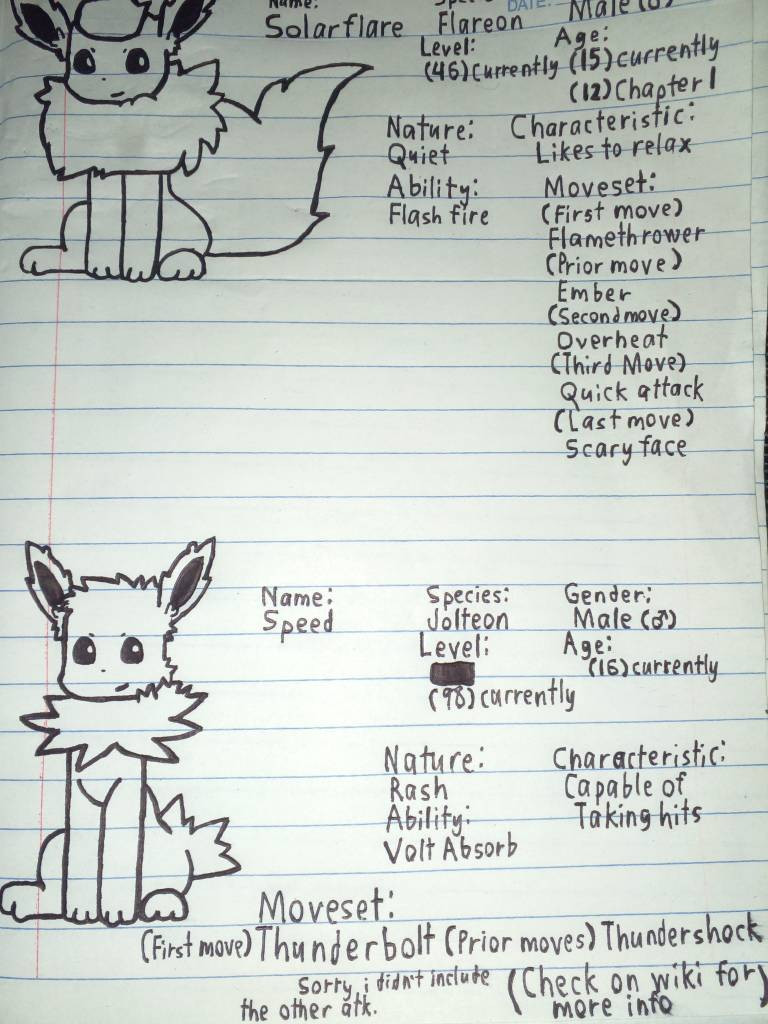 Name:
DATE:
Male (♂)
Solarflare
Flareon
Level:
Age:
(46) currently
(15) currently
(12) Chapter 1
Nature:
Characteristic:
Quiet
Likes to relax
Ability:
Moveset:
Flash fire
(First move)
Flamethrower
(Prior move)
Ember
(Second move)
Overheat
(Third Move)
Quick attack
(Last move)
Scary face
Name:
Species:
Gender:
Speed
Jolteon
Male (♂)
Level:
Age:
(16) currently
(98) currently
Nature:
Characteristic:
Rash
Capable of
Ability:
Taking hits
Volt Absorb
Moveset:
(First move) Thunderbolt (Prior moves) Thundershock
Sorry i didn't include
the other atk.
(Check on wiki for)
more info